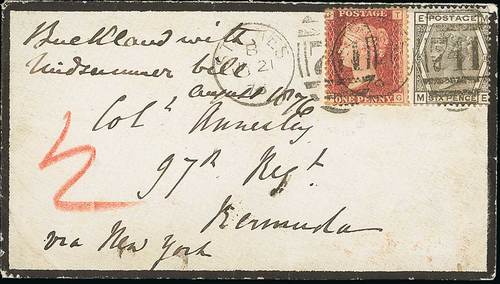 Buckland with
Midsummer bill
August 1876
Col! Annesley
97th Regt
Bermuda
via New York
B
21
POSTAGE
T
G
ONE PENNY
E POSTAGE M
M SIX PENCE E
741
741